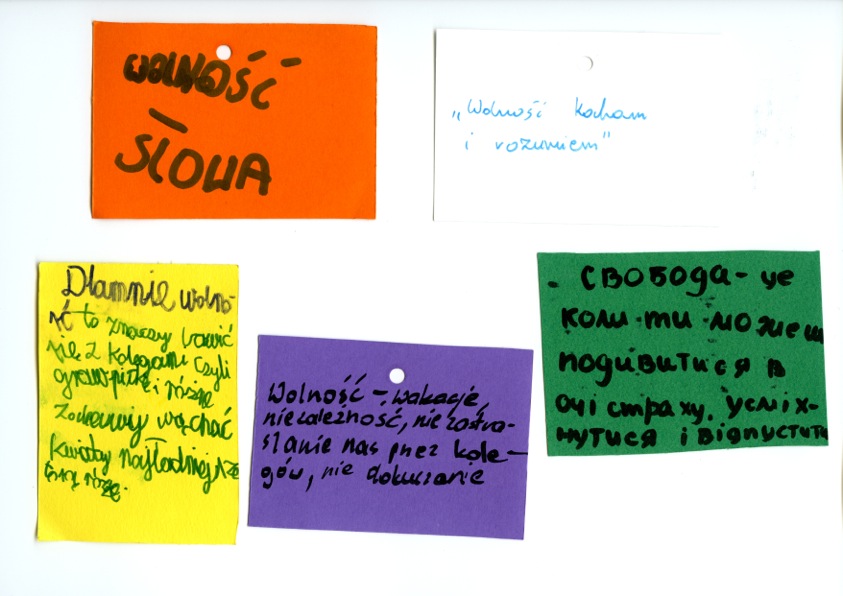 WOLNOŚĆ
–
SŁOWA
„Wolność kocham
i rozumiem”
Dlamnie wolno-
ść to znaczy bawić
się z kolegami czyli
grawpiłkę i różne
wąchać
kwiaty najładniejsze
są róże.
Wolność – wakacje,
niezależność, nie zastra-
szanie nas przez kole-
gów, nie dokuczanie
СВОБОДА - це
коли ти можеш
подивитися в
очі страху, усміх-
нутися і відпустити